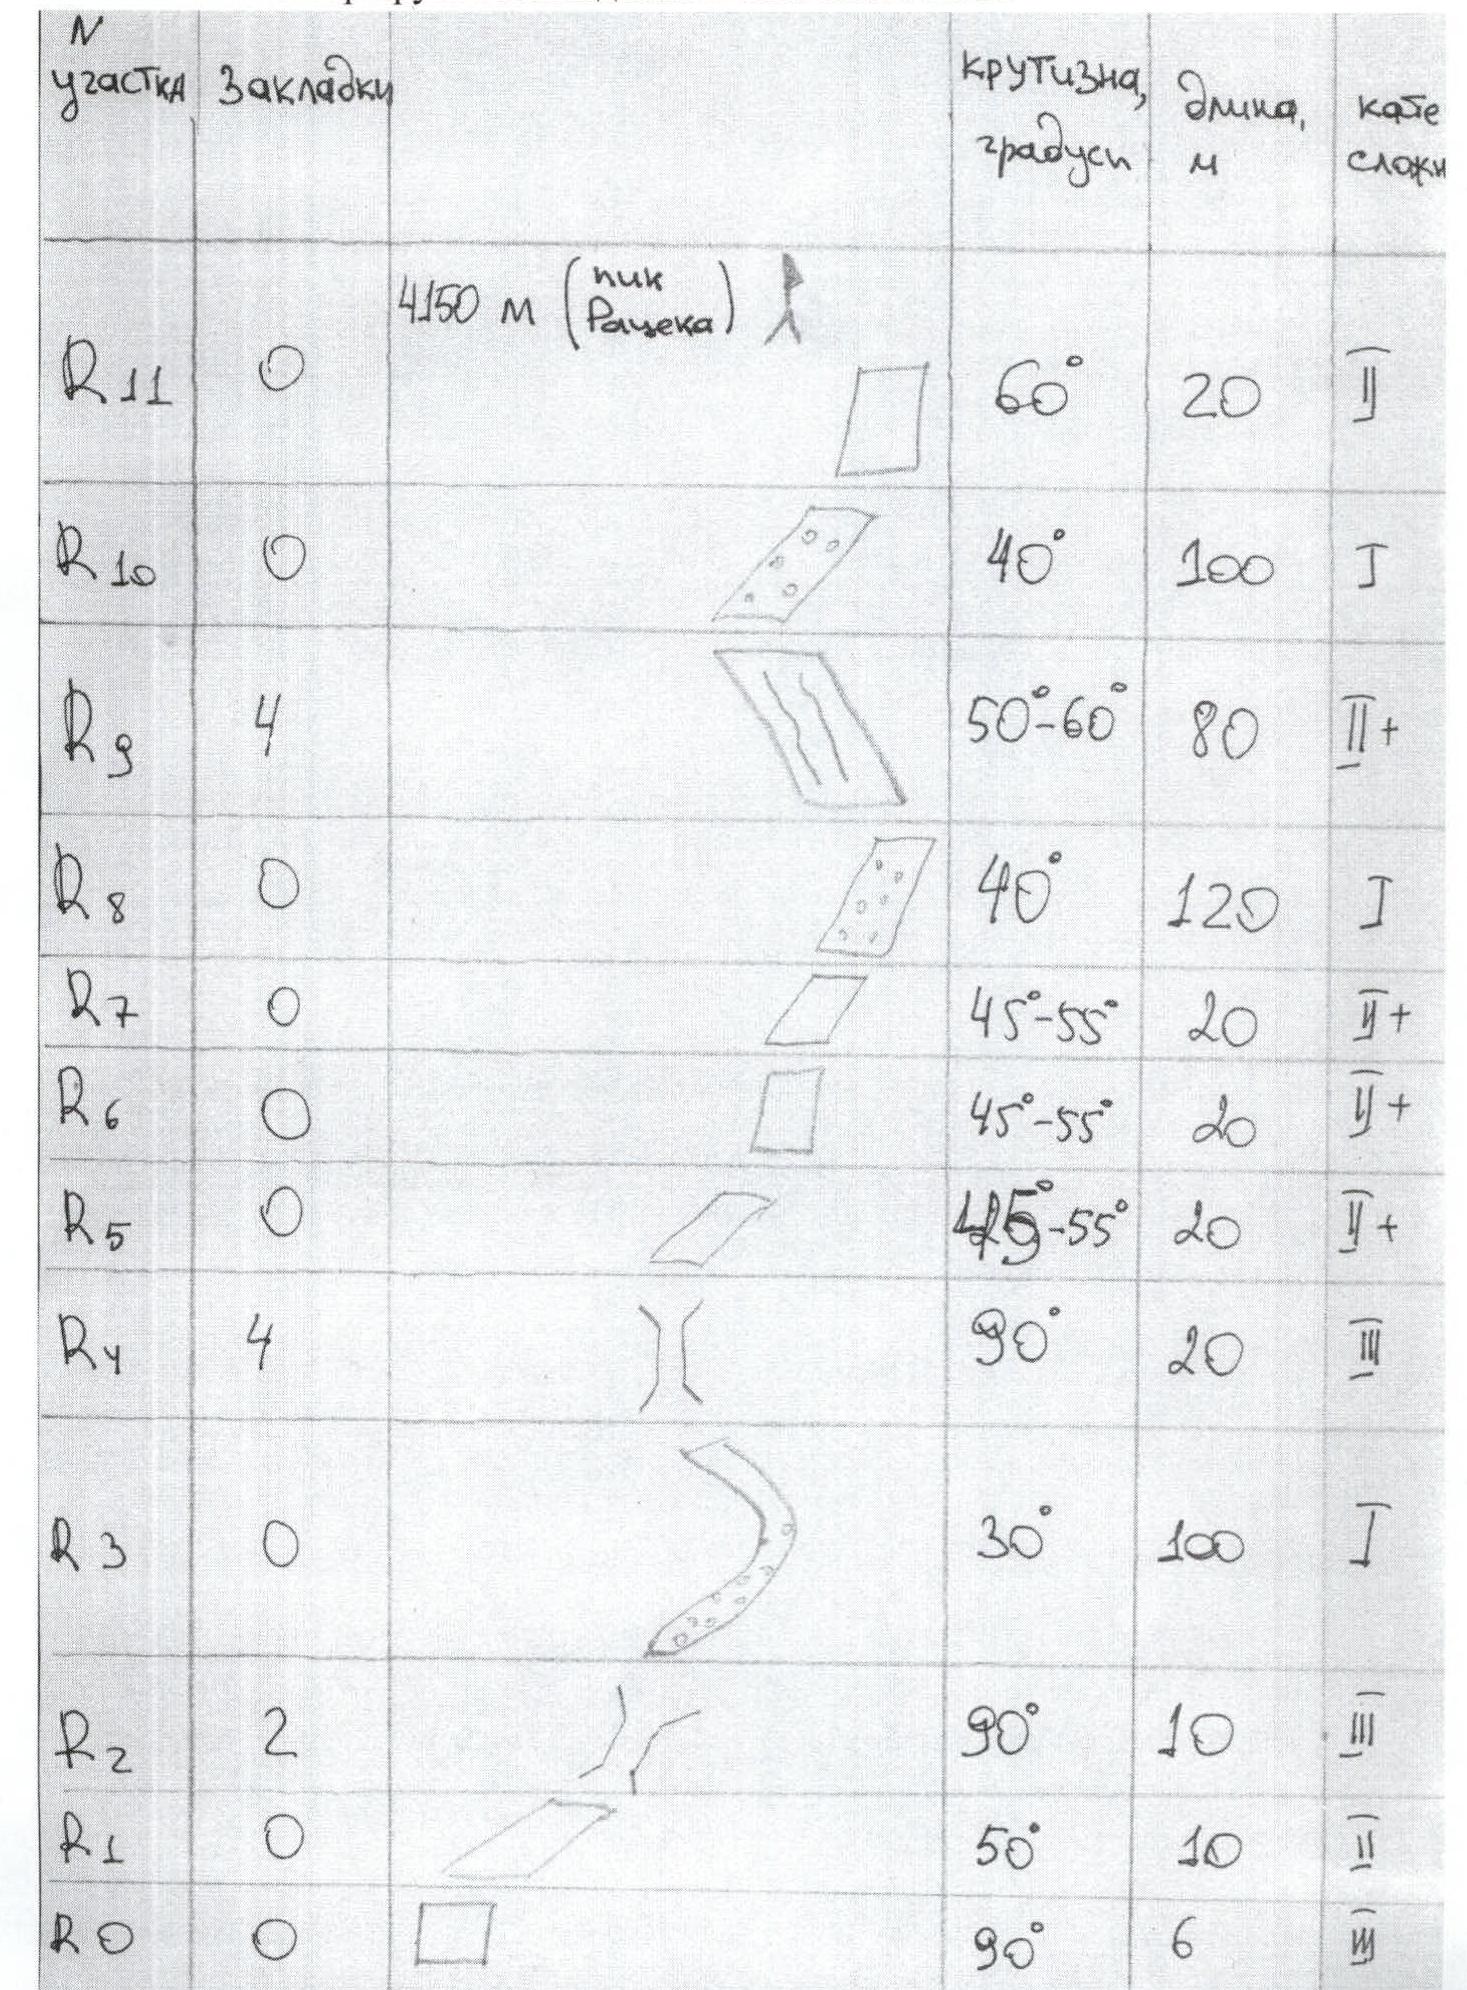 N
участка Закладки крутизна, градуси длина, м кате сложн
4150 м (пик Рацека)
R11 0 60° 20 II
R10 0 40° 100 I
R9 4 50°-60° 80 II+
R8 0 40° 120 I
R7 0 45°-55° 20 II+
R6 0 45°-55° 20 II+
R5 0 45°-55° 20 II+
R4 4 90° 20 III
R3 0 30° 100 I
R2 2 90° 10 III
R1 0 50° 10 II
R0 0 90° 6 III